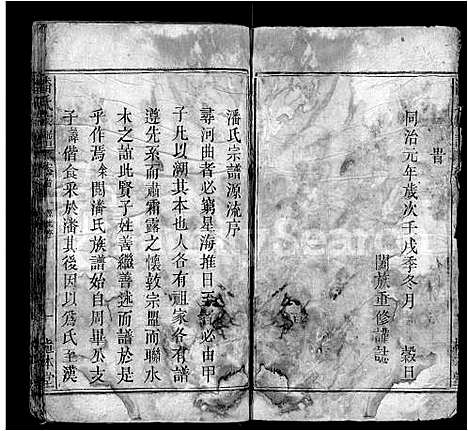 旹
同治元年歲次壬戌季冬月 穀日
闔族重修謹誌
潘氏宗譜源流序
尋河曲者必窮星海推日 必由甲
子凡以溯其本也人各有祖家各有譜
遵先系而肅霜露之懷敦宗盟而聯水
木之誼此賢子姓善繼善述而譜於是
乎作焉 閱潘氏族譜始自周畢公支
子 偕食采於潘其後因以為氏至漢